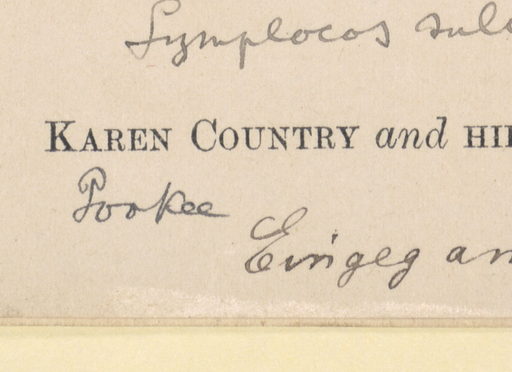 Symplocos
KAREN COUNTRY and
Pookee
Eingeg an